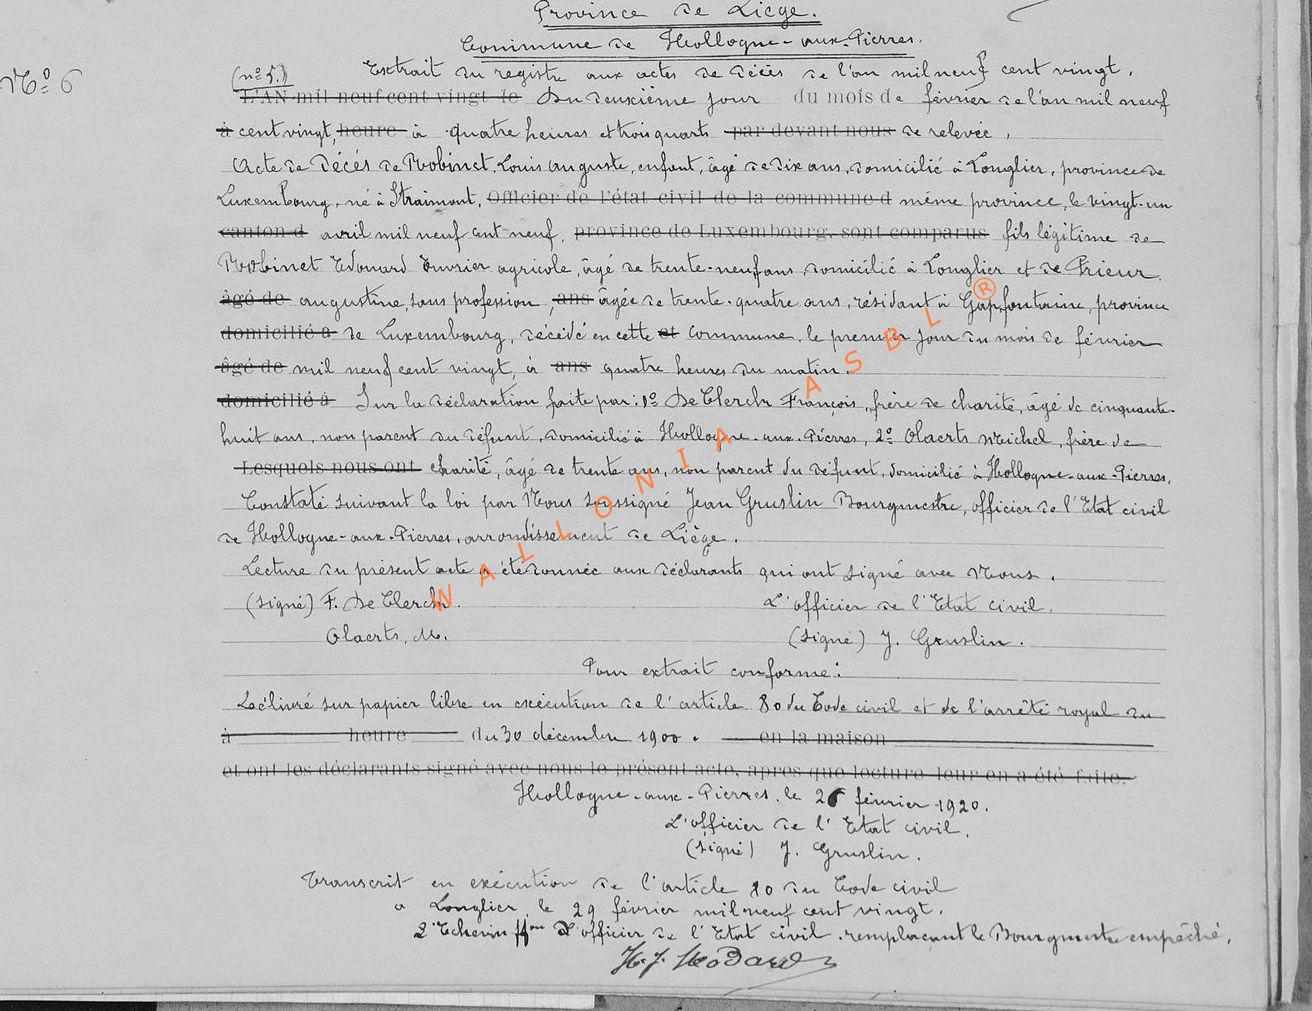 Province de Liège.
Commune de Hollogne-aux-Pierres.
N° 6
(n° 5.) Extrait du registre aux actes de décès de l'an mil neuf cent vingt.
L'AN mil neuf cent vingt le Du deuxième jour du mois de février de l'an mil neuf
à cent vingt, heure à quatre heures et trois quarts par devant nous de relevée,
Acte de décès de Robinet, Louis auguste, enfant, âgé de dix ans, domicilié à Longlier, province de
Luxembourg, né à Straimont, Officier de l'état civil de la commune d même province, le vingt-un
canton d avril mil neuf cent neuf, province de Luxembourg, sont comparus fils légitime de
Robinet Edouard Ouvrier agricole, âgé de trente-neuf ans, domicilié à Longlier et de Prieur,
âgé de augustine, sans profession, ans âgée de trente-quatre ans, résidant à Gapfontaine, province
domicilié à de Luxembourg, décédé en cette et commune, le premier jour du mois de février
âgé de mil neuf cent vingt, à ans quatre heures du matin.
domicilié à Sur la déclaration faite par: 1° De Clerck François, frère de charité, âgé de cinquante-
huit ans, non parent du défunt, domicilié à Hollogne-aux-Pierres, 2° Olaerts Michel, frère de
Lesquels nous ont charité, âgé de trente ans, non parent du défunt, domicilié à Hollogne-aux-Pierres.
Constaté suivant la loi par Nous soussigné Jean Gruslin Bourgmestre, officier de l'Etat civil
de Hollogne-aux-Pierres, arrondissement de Liège.
Lecture du présent acte a été donnée aux déclarants qui ont signé avec Nous.
(Signé) F. De Clerck. L'officier de l'Etat civil,
Olaerts, M. (Signé) J. Gruslin.
Pour extrait conforme:
Délivré sur papier libre en exécution de l'article 80 du Code civil et de l'arrêté royal du
à heure du 30 décembre 1900. en la maison
et ont les déclarants signé avec nous le présent acte, après que lecture leur en a été faite.
Hollogne-aux-Pierres, le 26 février 1920.
L'officier de l'Etat civil,
(Signé) J. Gruslin.
Transcrit en exécution de l'article 80 du Code civil
a Longlier le 29 février mil neuf cent vingt.
L'Echevin ffons d'officier de l'Etat civil, remplaçant le Bourgmestre empêché,
WALLONIA ASBL ®